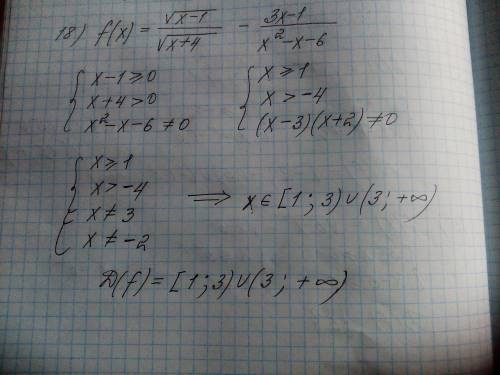 18) f(x) = √(x-1)/√(x+4) - (3x-1)/(x²-x-6)
{ x-1≥0
x+4>0
x²-x-6≠0
{ x≥1
x>-4
(x-3)(x+2)≠0
{ x≥1
x>-4
x≠3
x≠-2
⟹ x∈[1;3)∪(3;+∞)
D(f)=[1;3)∪(3;+∞)